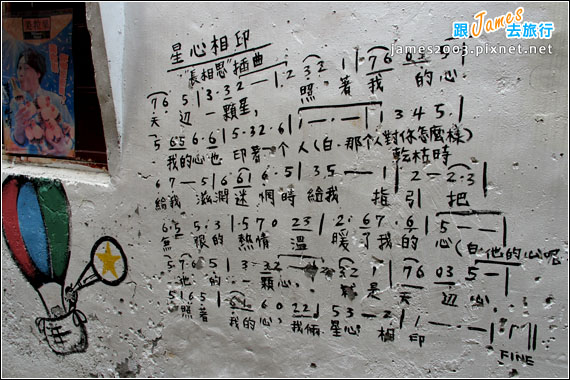 跟James去旅行
james2003.pixnet.net
星心相印
"長相思"插曲
7 6 5 | 3 · 3 2 — — | · 2 3 2 1 | — · 7 6 0 3 5 |
天 边 一 顆星, 照 著 我 的 心.
5 6 5 6 · 6 | 5 · 3 2 · 6 | 1 — · — — | · 1 3 4 5 · |
我的心也 印著一个人(白·那个人對你怎麼樣) 乾枯時
6 7 — 5 | 6 6 1 6 · 5 | 3 5 — 1 | 2 — 2 · 3 |
給我 滋潤迷惘時給我 指引 把
6 · 5 5 · 3 | · 5 7 0 2 3 | 2 · 6 7 · 6 | 5 — — |
無 限的 熱情 溫 暖了我的 心(白他的心呢
5 · 7 6 · 5 | 3 · 3 2 — · — | 3 2 1 | 7 6 0 3 5 — |
他 的 一 顆心, 就是 天 边 心
5 1 6 5 | 2 6 0 2 2 | 5 3 — 2 | 1 — · — |
照著 我的心, 我倆星心 相 印
FINE